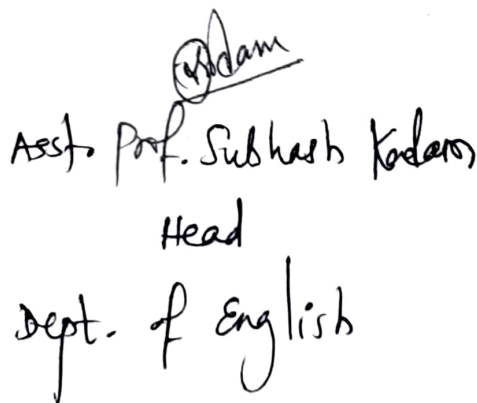 Kadam
Asst. Prof. Subhash Kadam
Head
Dept. of English